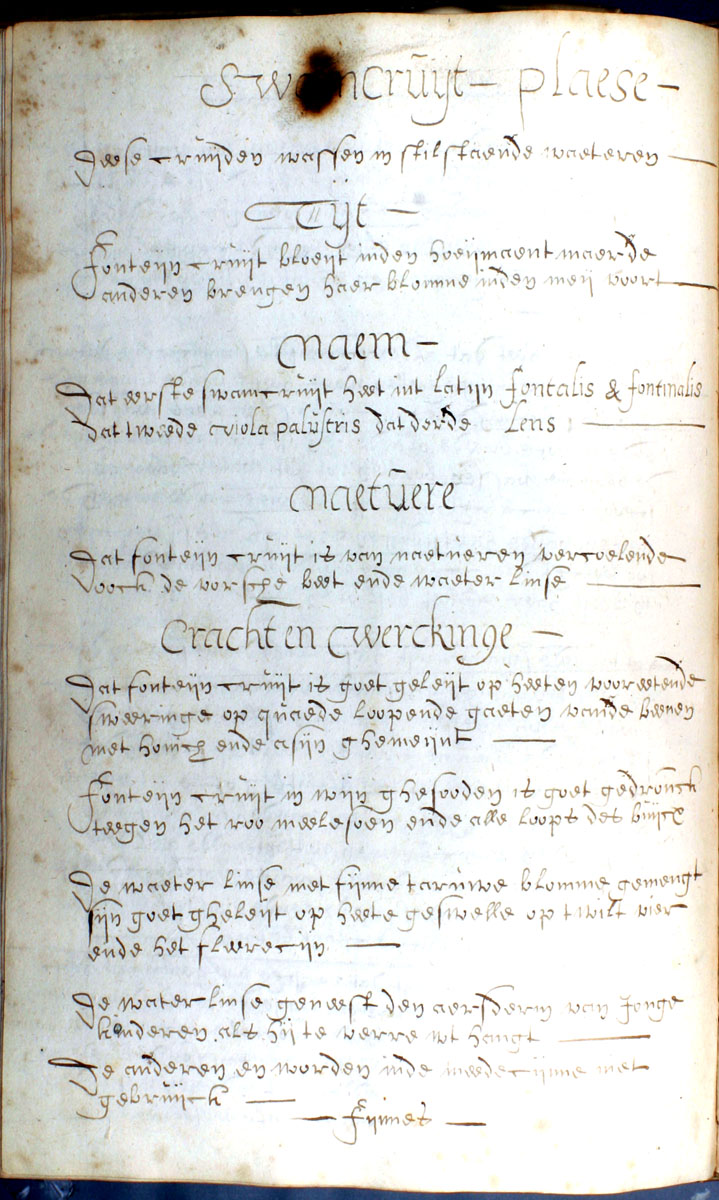 Swamcruijt – plaese –
Deese cruijden wassen in stilstaende waeteren
Tijt –
Fonteijn cruijt bloeijt inden hoeijmaent maer de
anderen brengen haer blomme inden meij voort
Naem –
Dat eerste swamcruijt heet int latijn fontalis & fontinalis
dat tweede viola palustris dat derde Lens
Naetuere
Dat fonteijn cruijt is van naetueren vercoelende
oock de vorsche beet ende waeter linse
Cracht en Werckinge –
Dat fonteijn cruijt is goet geleijt op heeten vooreetende
sweeringe op quaede loopende gaeten vande beenen
met honich ende asijn ghemeijnt
Fonteijn cruijt in wijn ghesooden is goet gedronck
teegen het roo meelesoen ende alle loops des buijcx
De waeter linse met fijnne taruwe blomme gemengt
sijn goet gheleijt op heete geswelle op twilt vier
ende het fleerecijn
De water linse geneest den aersderm van Jonge
kinderen als hij te verre wt hangt
De anderen en worden inde meedecijnne niet
gebruijck
– Fijnnes –